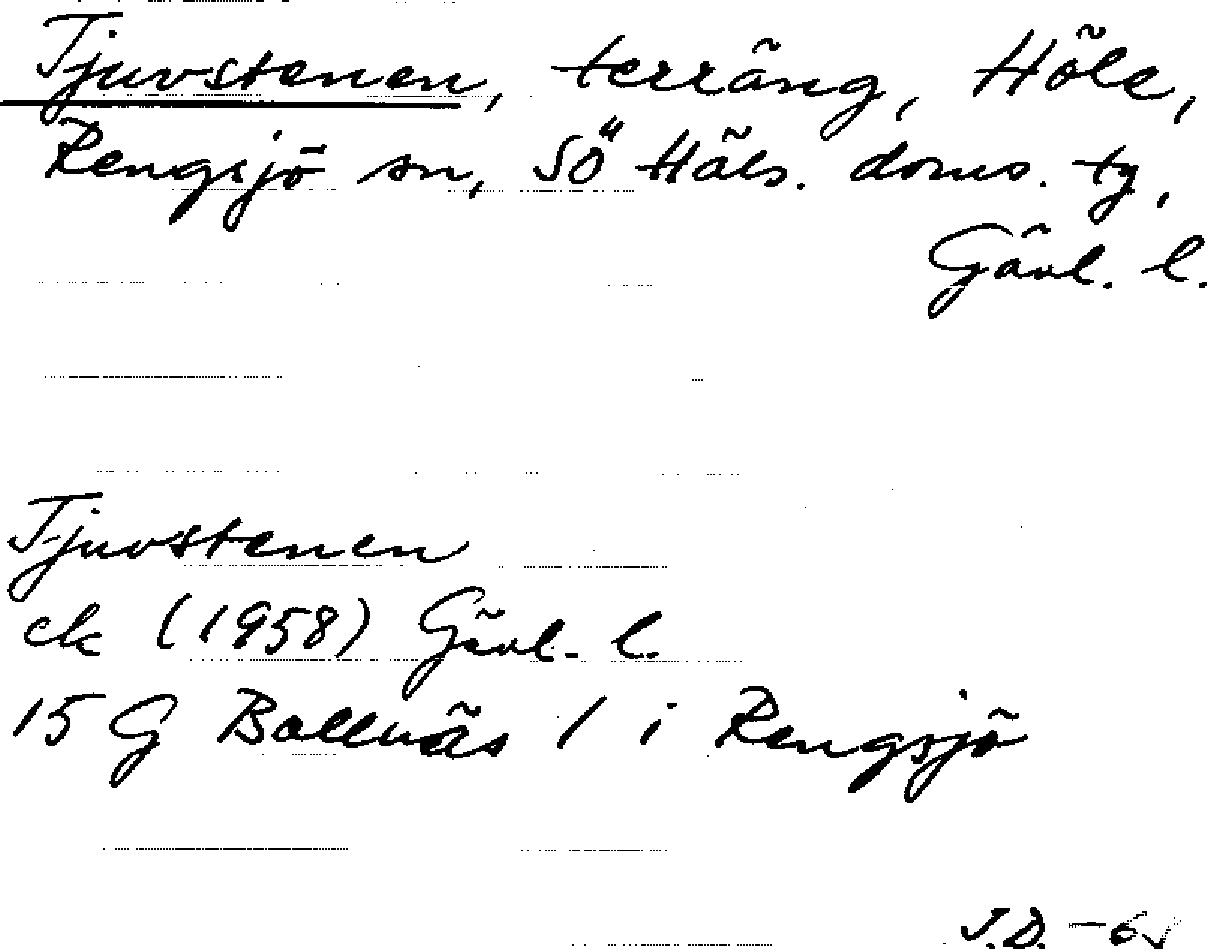 Tjuvstenen, terräng, Höle,
Rengsjö sn, SÖ Häls. doms. tg,
Gävl. l.
Tjuvstenen
ek (1958) Gävl. l.
15 G Bollnäs 1 i Rengsjö
J.D.